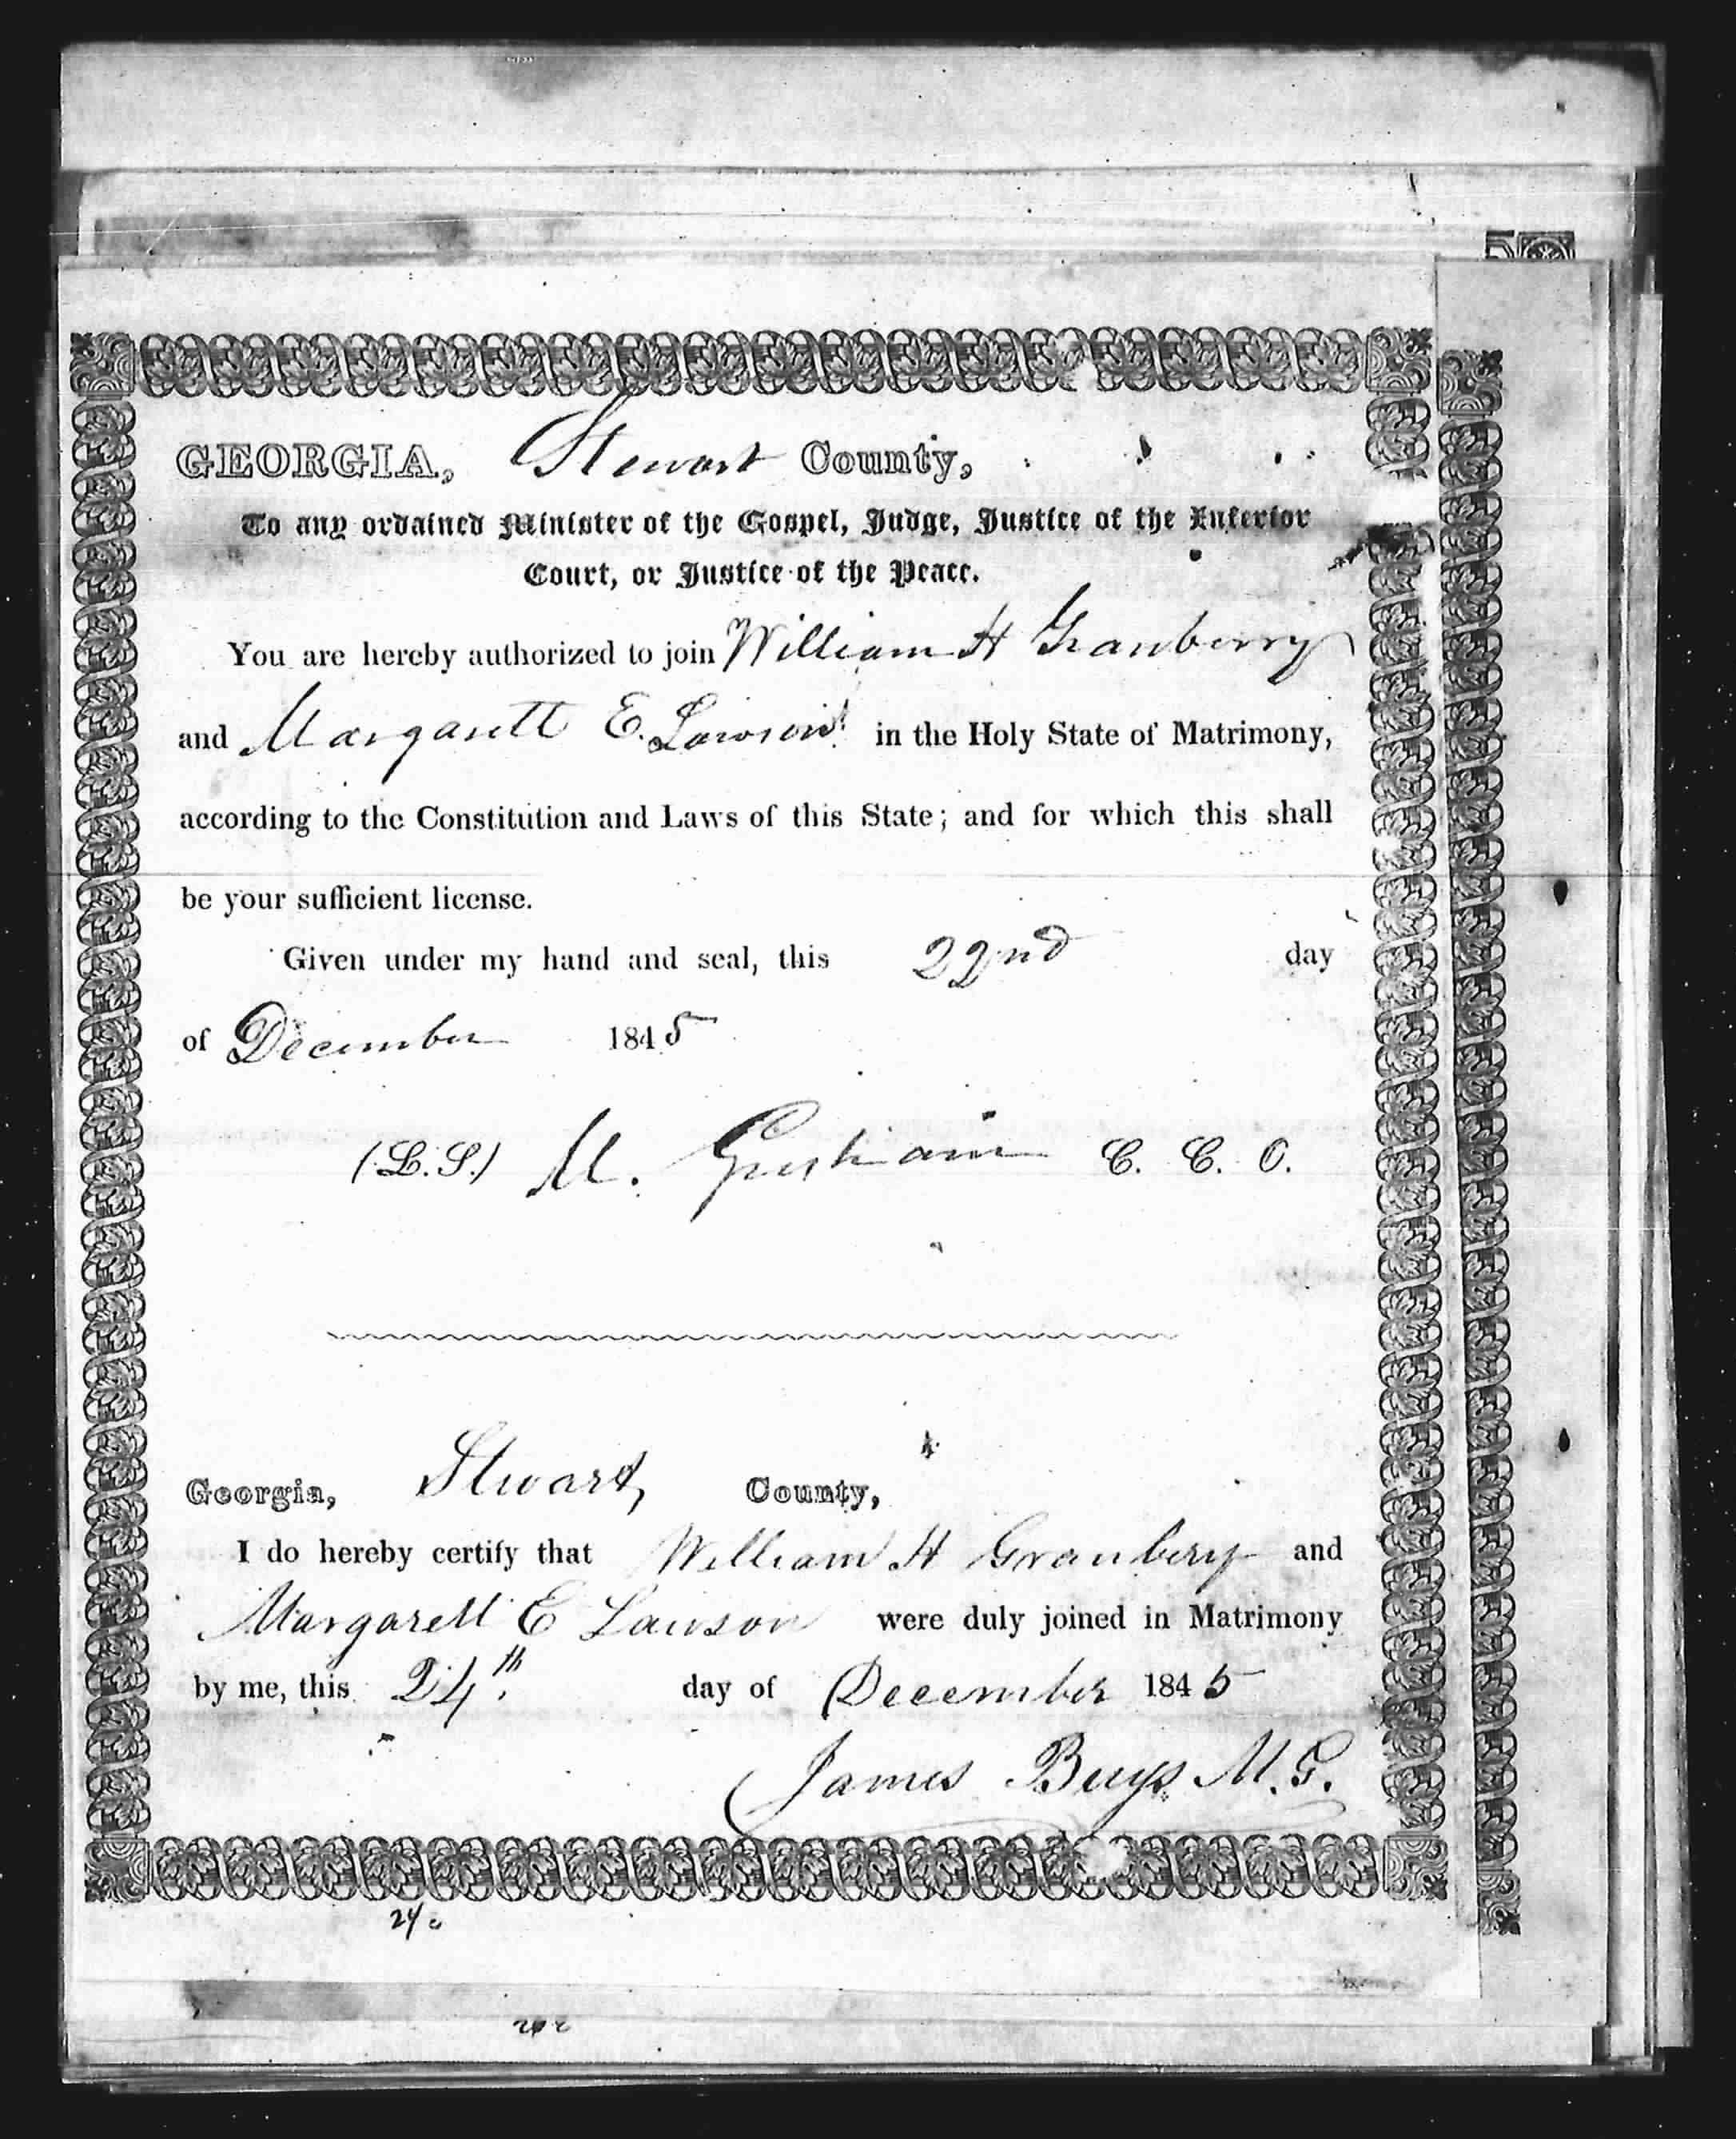 GEORGIA, Stewart County,
To any ordained Minister of the Gospel, Judge, Justice of the Inferior
Court, or Justice of the Peace.
You are hereby authorized to join William H Granberry
and Margarett E. Lawson in the Holy State of Matrimony,
according to the Constitution and Laws of this State; and for which this shall
be your sufficient license.
Given under my hand and seal, this 22nd day
of December 1845
(L.S.) M. Gresham C. C. O.
Georgia, Stwart, County,
I do hereby certify that William H Granbery and
Margarett E Lawson were duly joined in Matrimony
by me, this 24th. day of December 1845
James Buys M.G.